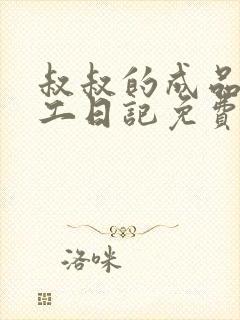 叔叔的成品
工日記免費
洛咪